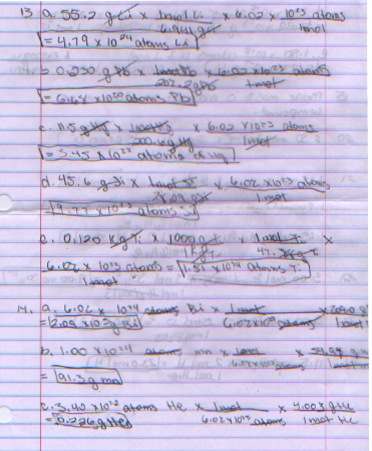 13 a. 55.2 g Li x 1 mol Li x 6.02 x 10²³ atoms
6.941 g Li 1 mol
= 4.79 x 10²⁴ atoms Li
b. 0.230 g Pb x 1 mol Pb x 6.02 x 10²³ atoms
207.2 g Pb 1 mol
= 6.68 x 10²⁰ atoms Pb
c. 11.5 g Hg x 1 mol Hg x 6.02 x 10²³ atoms
200.6 g Hg 1 mol
= 3.45 x 10²² atoms of Hg
d. 45.6 g Si x 1 mol Si x 6.02 x 10²³ atoms
28.09 g Si 1 mol
9.77 x 10²³ atoms Si
e. 0.120 kg Ti x 1000 g Ti x 1 mol Ti x
1 kg Ti g Ti
6.02 x 10²³ atoms = 1.51 x 10²⁴ atoms Ti
1 mol
14. a. 6.02 x 10²⁴ atoms Bi x 1 mol x 209.0 g
= 2.09 x 10³ g Bi 6.02 x 10²³ atoms 1 mol
b. 1.00 x 10²⁴ atoms mn x 1 mol x 54.94 g
= 91.3 g mn
c. 3.40 x 10²² atoms He x 1 mol x 4.003 g He
= 0.226 g He 6.02 x 10²³ atoms 1 mol He